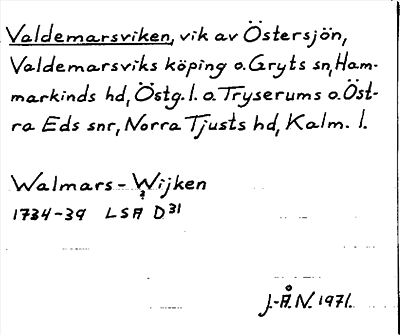 Valdemarsviken, vik av Östersjön,
Valdemarsviks köping o. Gryts sn, Ham-
markinds hd, Östg. l. o. Tryserums o. Öst-
ra Eds snr, Norra Tjusts hd, Kalm. l.
Walmars-Wijken
1734-39 LSA D31
J.-Å.N. 1971.